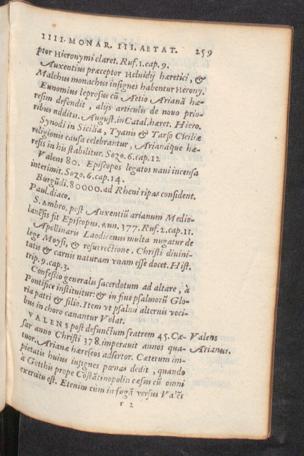 IIII. MONAR. III. AETAT. 259
ptor Hieronymi claret. Ruf. 1. cap. 9.
Auxentius præceptor Heluidij hæretici, &
Malchus monachus insignes habentur Hierony.
Eunomius leprosus cũ Aetio Arianã hæ-
resim defendit, alijs articulis de nouo prio-
ribus additis. August. in Catal. hæret. Hiero.
Synodi in Sicilia, Tyanis & Tarso Ciliciæ
religionis causa celebrantur, Arianaque hæ-
resis in his stabilitur. Sozo. 6. cap. 12.
Valens 80. Episcopos legatos naui incensa
interimit. Sozo. 6. cap. 14.
Burgũdi. 80000. ad Rheni ripas consident.
Paul. diaco.
S. Ambro. post Auxentiũ arianum Medio-
lanẽsis fit Episcopus. ann. 377. Ruf. 2. cap. 11.
Apollinaris Laodicenus multa nugatur de
lege Moysi, & resurrectione. Christi diuini-
tatis & carnis naturam vnam esse docet. Hist.
trip. 9. cap. 3.
Confessio generalis sacerdotum ad altare, à
Pontifice instituitur: & in fine psalmorũ Glo-
ria patri & filio. Item vt psalmi alternis voci-
bus in choro canantur Volat.
VALENS post defunctum fratrem 45. Cæ-
sar anno Christi 378. imperauit annos qua-
tuor, Arianæ hæreseos adsertor. Cæterum im-
pietatis huius insignes pœnas dedit, quando
à Gotthis prope Cõstãtinopolin cæsus cũ omni
exercitu est. Etenim cùm in fugã versus Valẽs
Valens
Arianus.
r 2